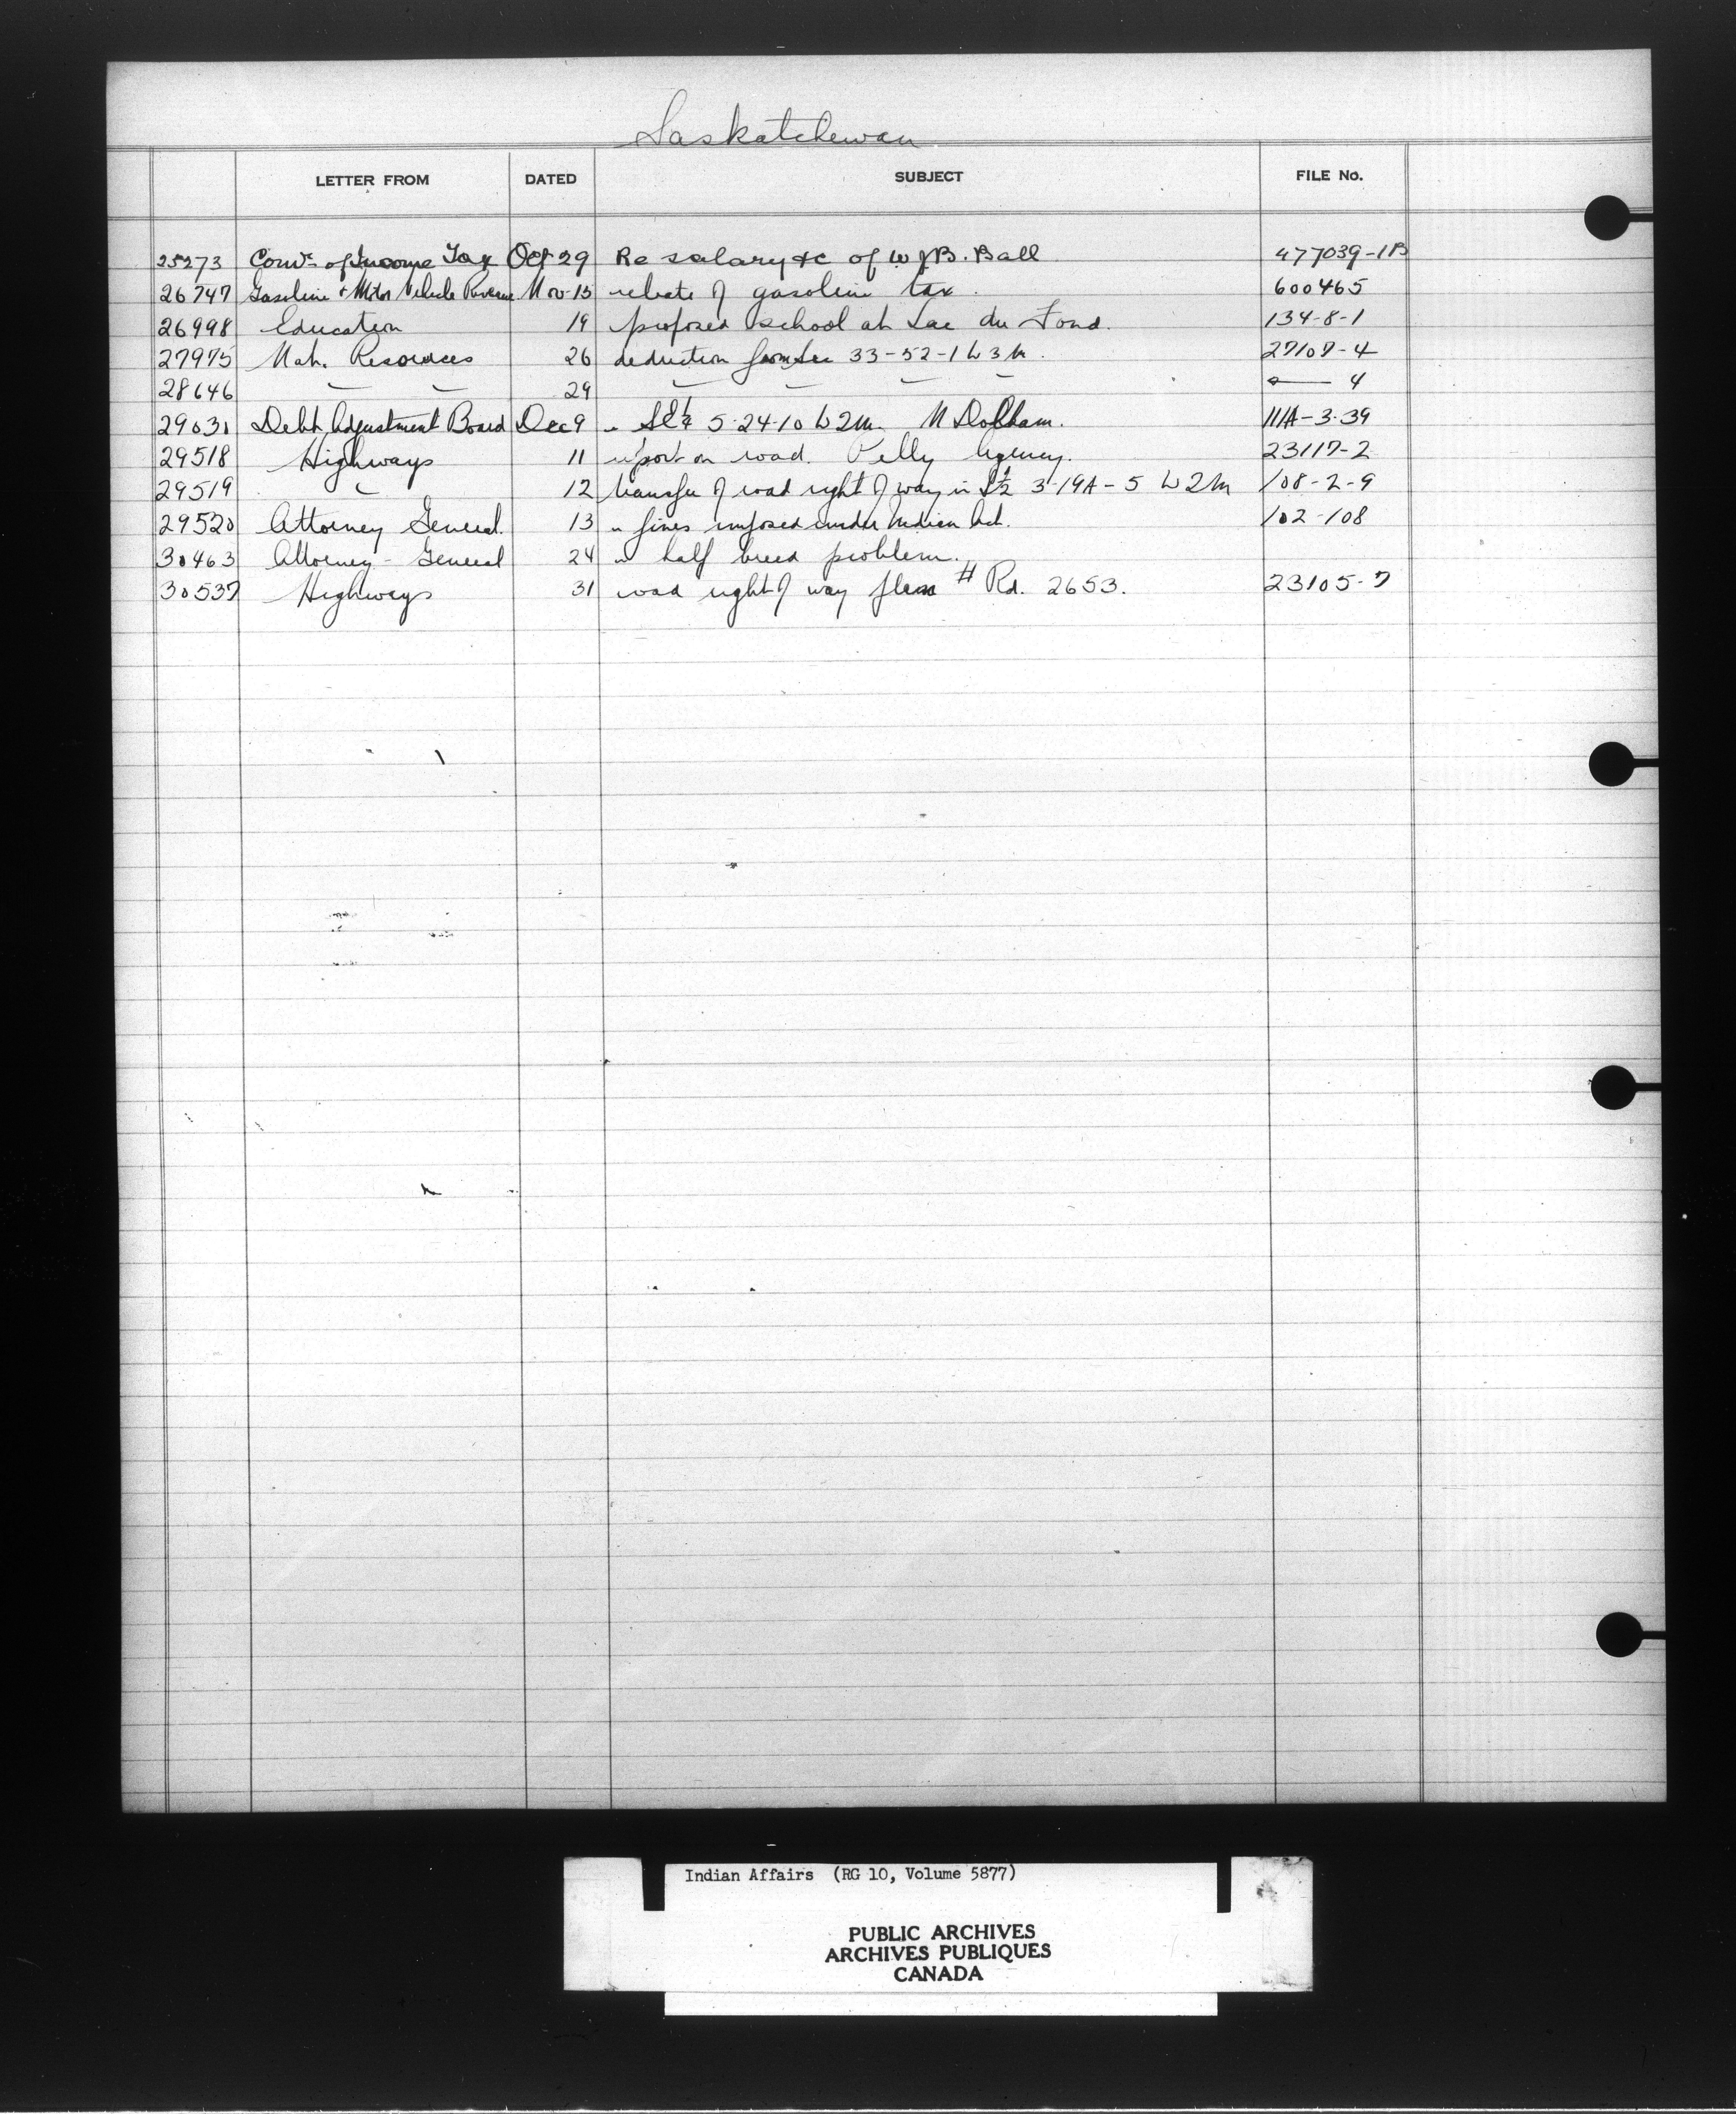 Saskatchewan
LETTER FROM DATED SUBJECT FILE No.
25273 Comr. of Income Tax Oct 29 Re salary &c of W J B. Ball 477039-1B
26747 Gasoline & Motor Vehicle Revenue Nov. 15 rebate of gasoline tax. 600465
26998 Education 19 proposed school at Lac du Fond. 134-8-1
27975 Nat. Resources 26 deduction from Sec 33-52-1 W 3 M. 27107-4
28646 — — 29 — — — — — 4
29031 Debt Adjustment Board Dec 9 5-24-10 W 2 M. 111A-3-39
29518 Highways 11 report on road. Pelly Agency. 23117-2
29519 " 12 transfer of road right of way in 3-19A-5 W 2 M 108-2-9
29520 Attorney General. 13 " fines imposed under Indian Act. 102-108
30463 Attorney-General 24 " half breed problem.
30537 Highways 31 road right of way plan # Rd. 2653. 23105-7
Indian Affairs (RG 10, Volume 5877)
PUBLIC ARCHIVES
ARCHIVES PUBLIQUES
CANADA